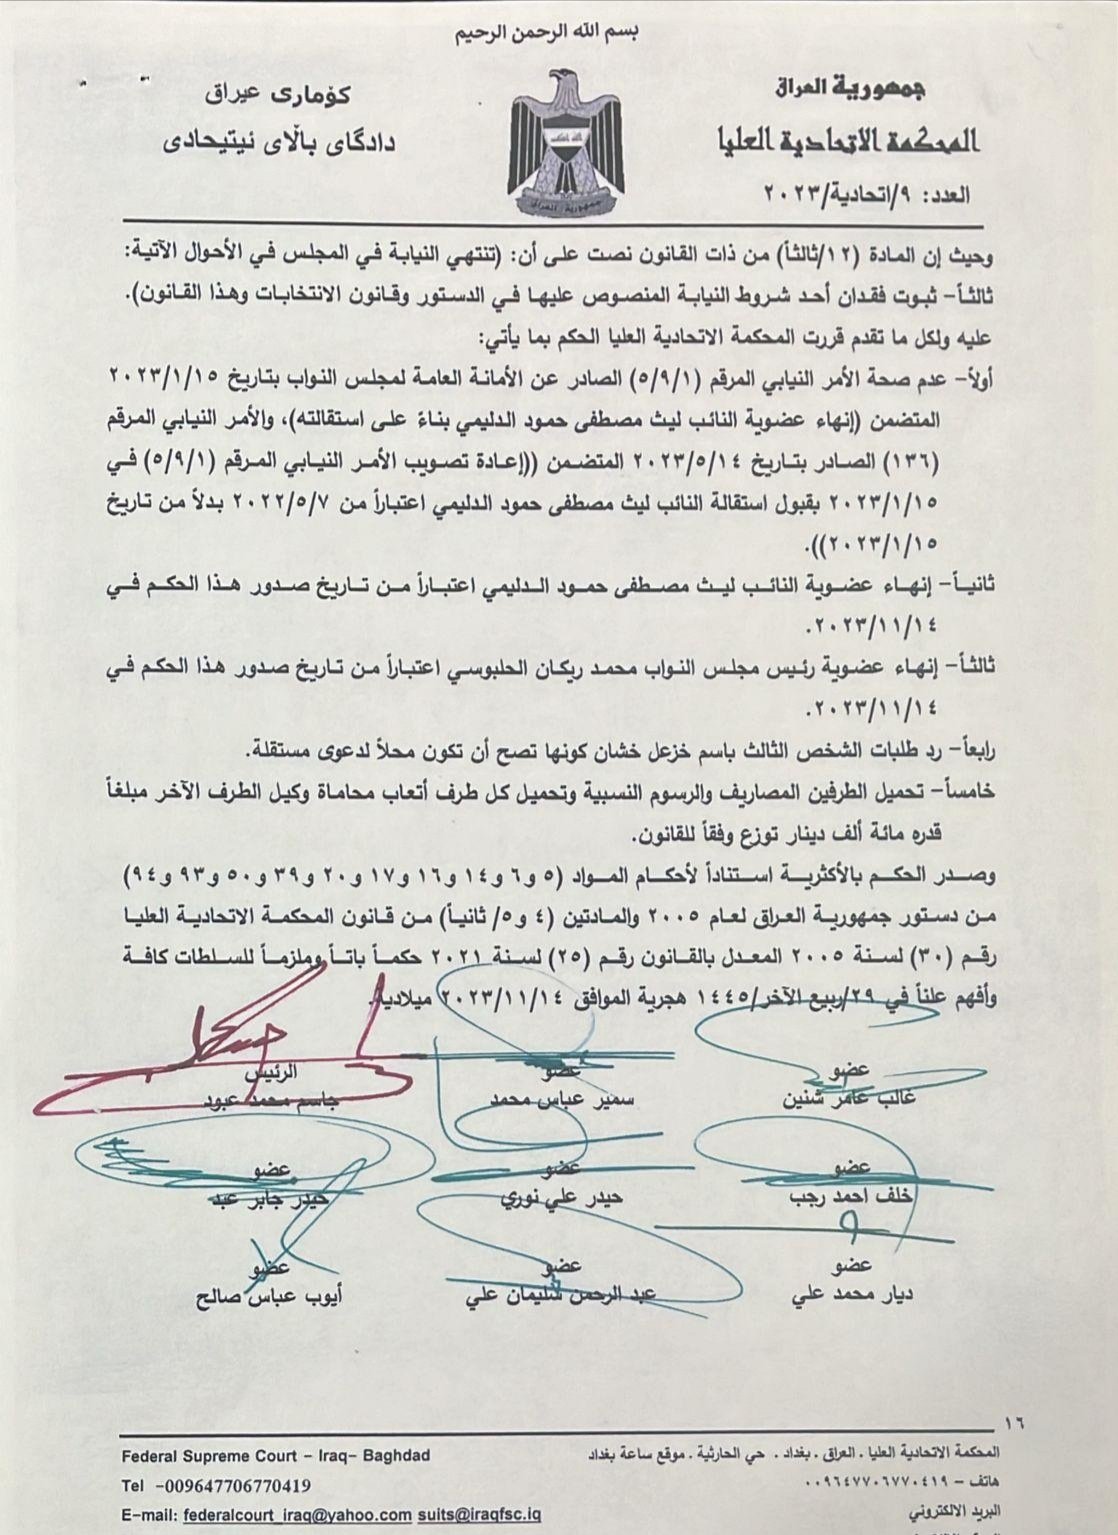 بسم الله الرحمن الرحيم
جمهورية العراق
المحكمة الاتحادية العليا
العدد: ٩/اتحادية/٢٠٢٣
كۆماری عیراق
دادگای باڵای ئیتیحادی
جمهورية العراق
وحيث إن المادة (١٢/ثالثاً) من ذات القانون نصت على أن: (تنتهي النيابة في المجلس في الأحوال الآتية:
ثالثاً- ثبوت فقدان أحد شروط النيابة المنصوص عليها في الدستور وقانون الانتخابات وهذا القانون).
عليه ولكل ما تقدم قررت المحكمة الاتحادية العليا الحكم بما يأتي:
أولاً- عدم صحة الأمر النيابي المرقم (٥/٩/١) الصادر عن الأمانة العامة لمجلس النواب بتاريخ ٢٠٢٣/١/١٥
المتضمن (إنهاء عضوية النائب ليث مصطفى حمود الدليمي بناءً على استقالته)، والأمر النيابي المرقم
(١٣٦) الصادر بتاريخ ٢٠٢٣/٥/١٤ المتضمن ((إعادة تصويب الأمر النيابي المرقم (٥/٩/١) في
٢٠٢٣/١/١٥ بقبول استقالة النائب ليث مصطفى حمود الدليمي اعتباراً من ٢٠٢٢/٥/٧ بدلاً من تاريخ
٢٠٢٣/١/١٥)).
ثانياً- إنهاء عضوية النائب ليث مصطفى حمود الدليمي اعتباراً من تاريخ صدور هذا الحكم في
٢٠٢٣/١١/١٤.
ثالثاً- إنهاء عضوية رئيس مجلس النواب محمد ريكان الحلبوسي اعتباراً من تاريخ صدور هذا الحكم في
٢٠٢٣/١١/١٤.
رابعاً- رد طلبات الشخص الثالث باسم خزعل خشان كونها تصح أن تكون محلاً لدعوى مستقلة.
خامساً- تحميل الطرفين المصاريف والرسوم النسبية وتحميل كل طرف أتعاب محاماة وكيل الطرف الآخر مبلغاً
قدره مائة ألف دينار توزع وفقاً للقانون.
وصدر الحكم بالأكثرية استناداً لأحكام المواد (٥ و٦ و١٤ و١٦ و١٧ و٢٠ و٣٩ و٥٠ و٩٣ و٩٤)
من دستور جمهورية العراق لعام ٢٠٠٥ والمادتين (٤ و٥/ ثانياً) من قانون المحكمة الاتحادية العليا
رقم (٣٠) لسنة ٢٠٠٥ المعدل بالقانون رقم (٢٥) لسنة ٢٠٢١ حكماً باتاً وملزماً للسلطات كافة
وأفهم علناً في ٢٩/ربيع الآخر/١٤٤٥ هجرية الموافق ٢٠٢٣/١١/١٤ ميلادية.
عضو
غالب عامر شنين
عضو
سمير عباس محمد
الرئيس
جاسم محمد عبود
عضو
خلف احمد رجب
عضو
حيدر علي نوري
عضو
حيدر جابر عبد
عضو
ديار محمد علي
عضو
عبد الرحمن سليمان علي
عضو
أيوب عباس صالح
١٦
المحكمة الاتحادية العليا . العراق . بغداد . حي الحارثية . موقع ساعة بغداد
هاتف – ٠٠٩٦٤٧٧٠٦٧٧٠٤١٩
البريد الالكتروني
Federal Supreme Court - Iraq- Baghdad
Tel -009647706770419
E-mail: federalcourt_iraq@yahoo.com suits@iraqfsc.iq